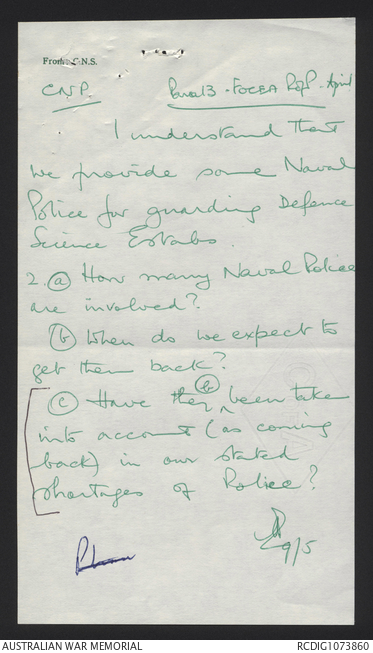 From: C.N.S.
CNP. Para 13 - FOCEA RofP - April
I understand that
we provide some Naval
Police for guarding Defence
Science Estabs.
2. (a) How many Naval Police
are involved?
(b) When do we expect to
get them back?
(c) Have they (b) been take
into account (as coming
back) in our stated
shortages of Police?
9/5
AUSTRALIAN WAR MEMORIAL RCDIG1073860